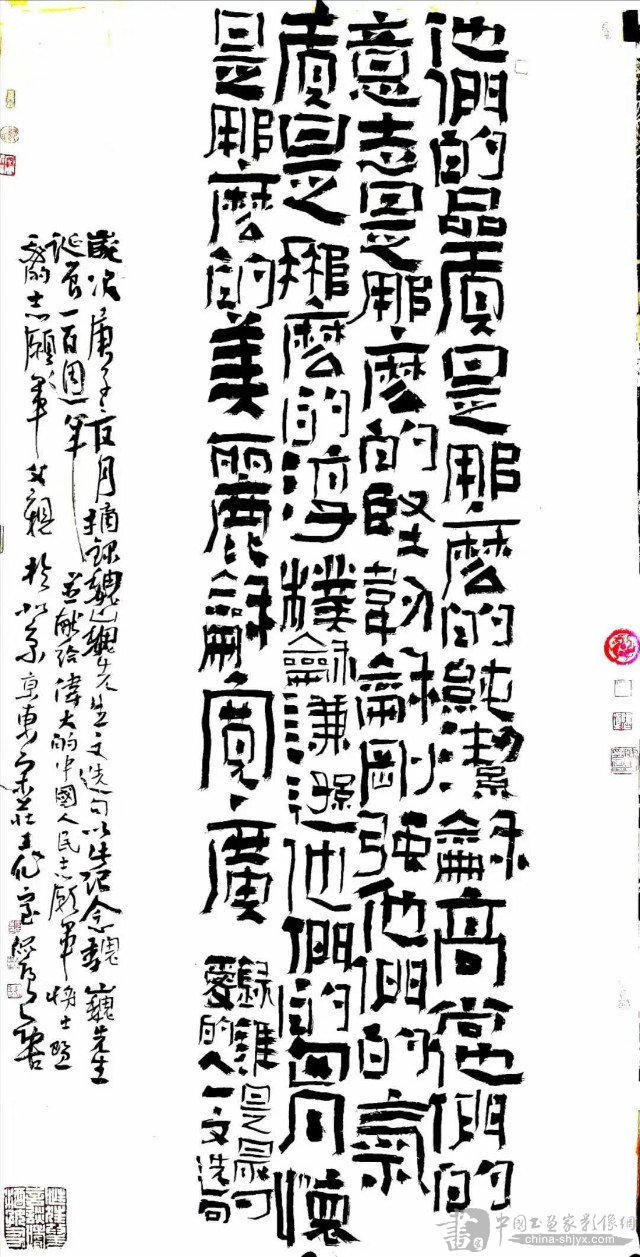 他們的品质是那麼的純潔龢高尚他們的
意志是那麼的堅韌龢剛强他們的氣
质是那麼的淳樸龢謙遜他們的胸懷
是那麼的美麗龢寬廣
錄誰是最可
愛的人一文選句
歲次庚子夏月摘錄魏巍先生文選句以此紀念魏巍先生
誕辰一百周年並獻給偉大的中國人民志願軍將士暨
我的志願軍父親於北京京東宋莊
書
中國书画家影像網
china-shjyx.com